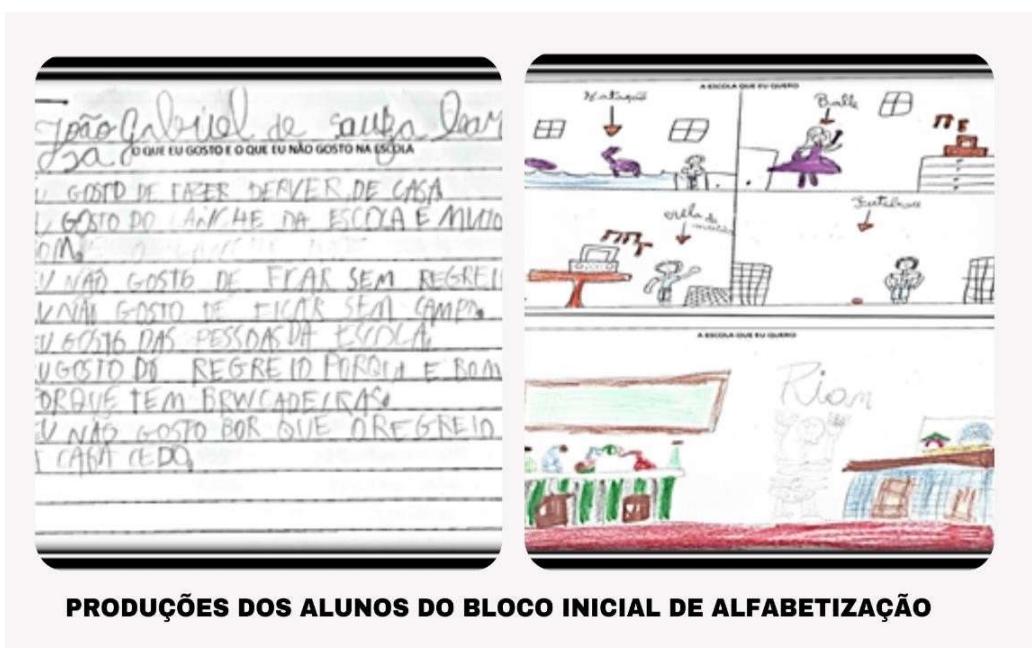 João Gabriel de Souza
O QUE EU GOSTO E O QUE EU NÃO GOSTO NA ESCOLA
GOSTO DE FAZER DERVER DE CASA
GOSTO DO LANCHE DA ESCOLA E MUITO
OM.
U NÃO GOSTO DE FIAR SEM REGREI
U NÃO GOSTO DE FICAR SEM CAMPO.
EU GOSTO DAS PESSOAS DA ESCOLA.
U GOSTO DO REGREIO PORQUE E BOM
ORQUE TEM BRINCADEIRAS.
EU NÃO GOSTO BOR QUE O REGREIO
CABA CEDO.
A ESCOLA QUE EU QUERO
Natação
Balle
Futebol
A ESCOLA QUE EU QUERO
Rian
PRODUÇÕES DOS ALUNOS DO BLOCO INICIAL DE ALFABETIZAÇÃO